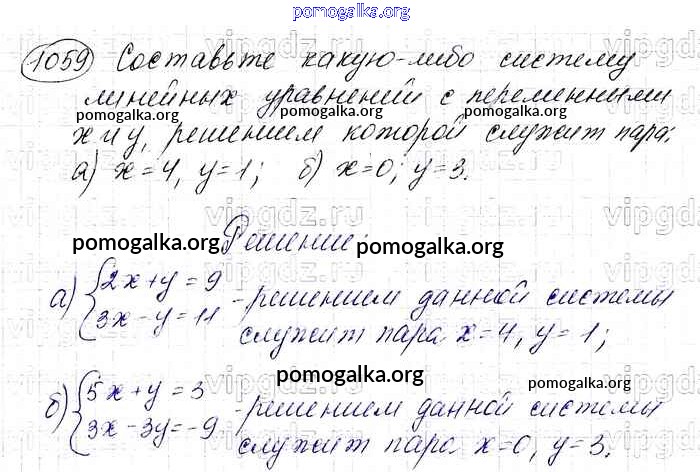 pomogalka.org
1059 Составьте какую-либо систему
линейных уравнений с переменными
pomogalka.org pomogalka.org pomogalka.org
x и y, решением которой служит пара:
а) x=4, y=1; б) x=0, y=3.
pomogalka.org
Решение:
pomogalka.org pomogalka.org
а) {2x+y=9
3x-y=11 - решением данной системы
служит пара x=4, y=1;
pomogalka.org pomogalka.org
б) {5x+y=3
3x-3y=-9 - решением данной системы
служит пара x=0, y=3.
pomogalka.org
vipgdz.ru